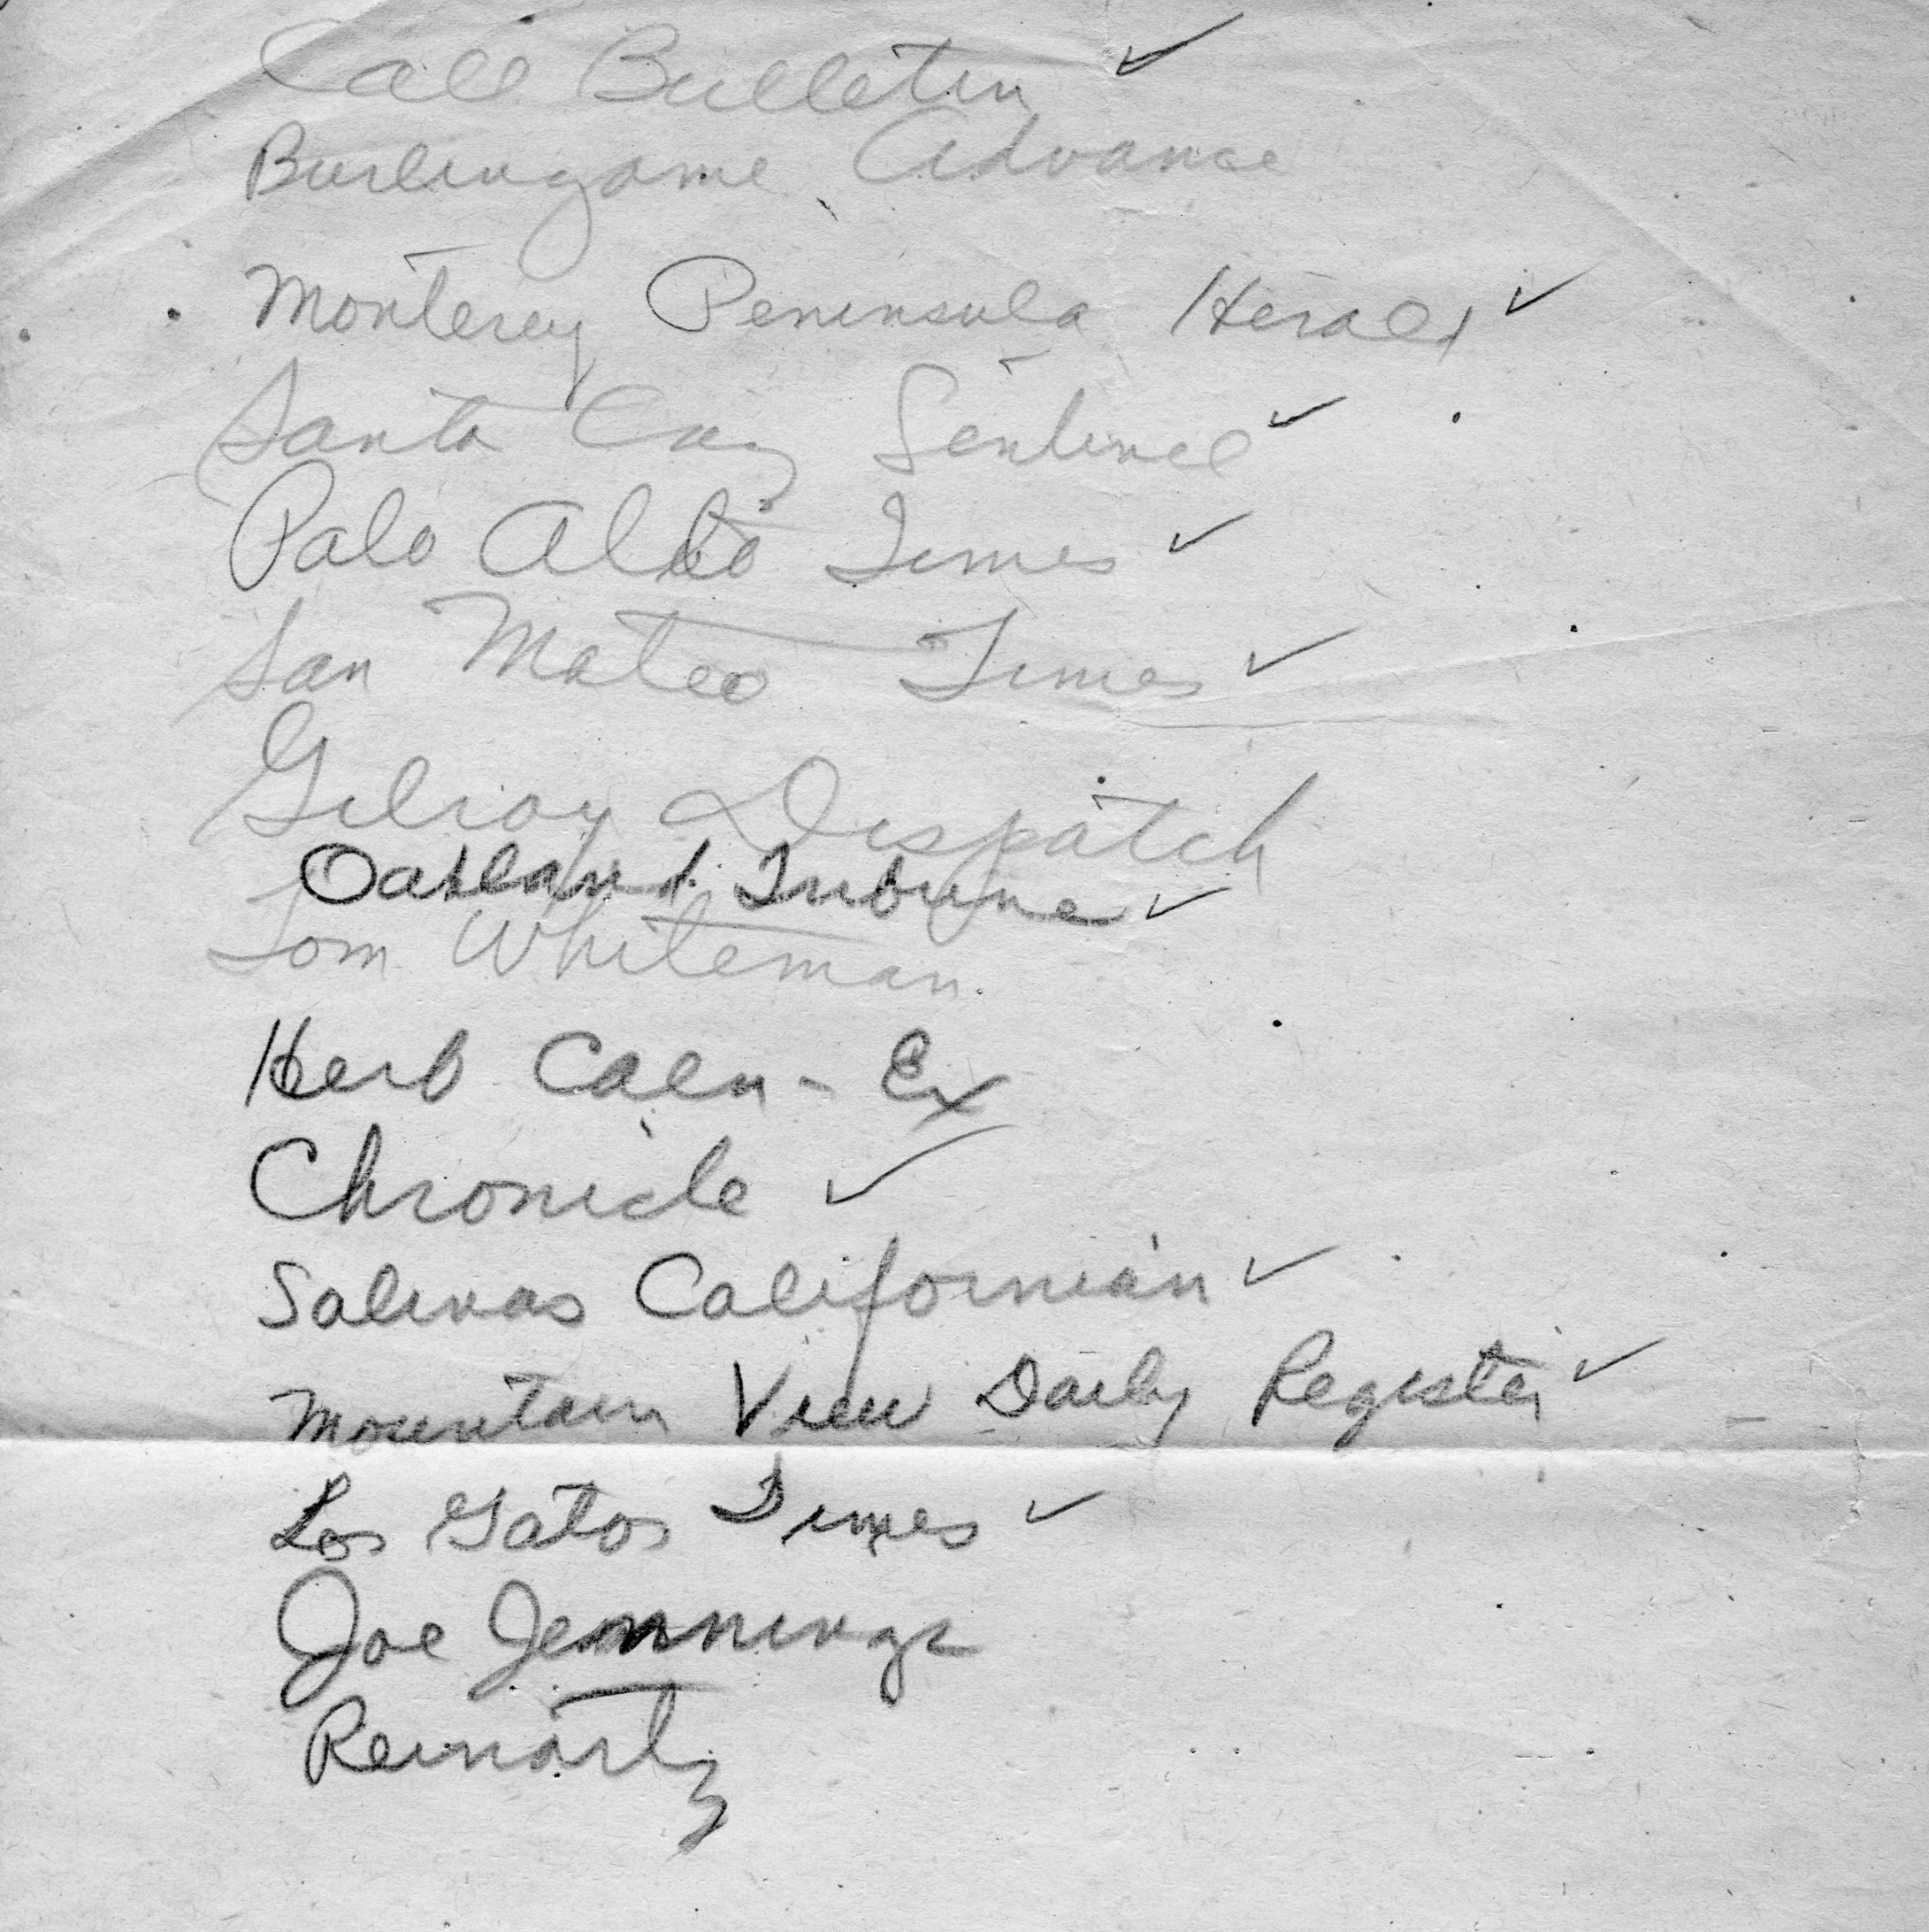 Call Bulletin ✓
Burlingame Advance
Monterey Peninsula Herald ✓
Santa Cruz Sentinel ✓
Palo Alto Times ✓
San Mateo Times ✓
Gilroy Dispatch
Oakland Tribune ✓
Tom Whiteman
Herb Caen - Ex
Chronicle ✓
Salinas Californian ✓
Mountain View Daily Register ✓
Los Gatos Times ✓
Joe Jennings
Reinartz